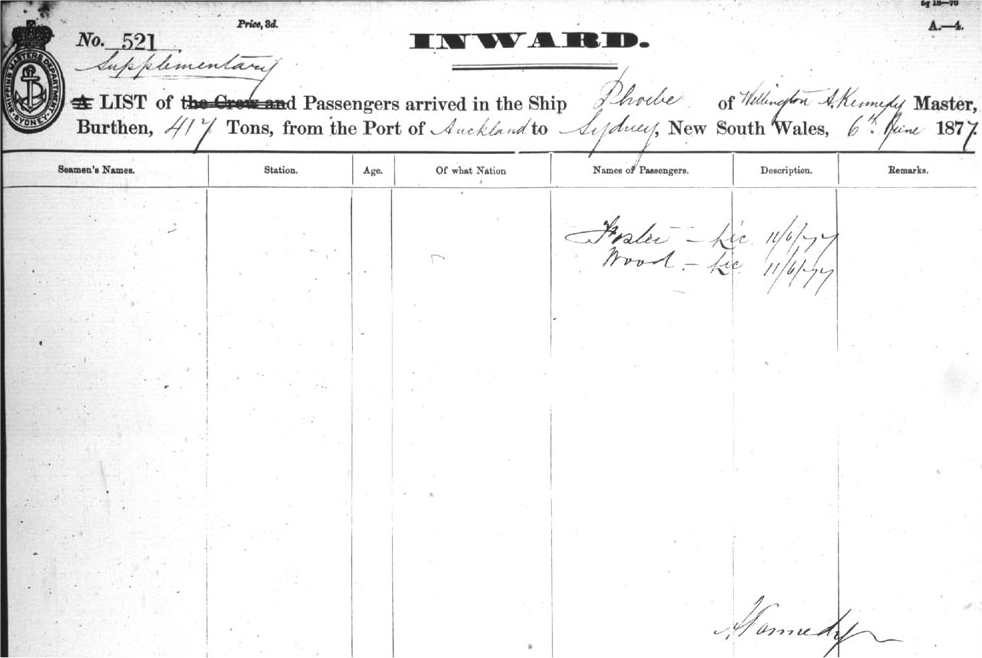 Sg 18—76
Price, 3d.
A.—4.
No. 521
INWARD.
Supplementary
SHIPPING MASTERS DEPARTMENT SYDNEY
A LIST of the Crew and Passengers arrived in the Ship Phoebe of Wellington A. Kennedy Master,
Burthen, 417 Tons, from the Port of Auckland to Sydney, New South Wales, 6th June 1877.
Seamen's Names. Station. Age. Of what Nation Names of Passengers. Description. Remarks.
Foster – Lic 11/6/77
Wood – Lic 11/6/77
A Kennedy